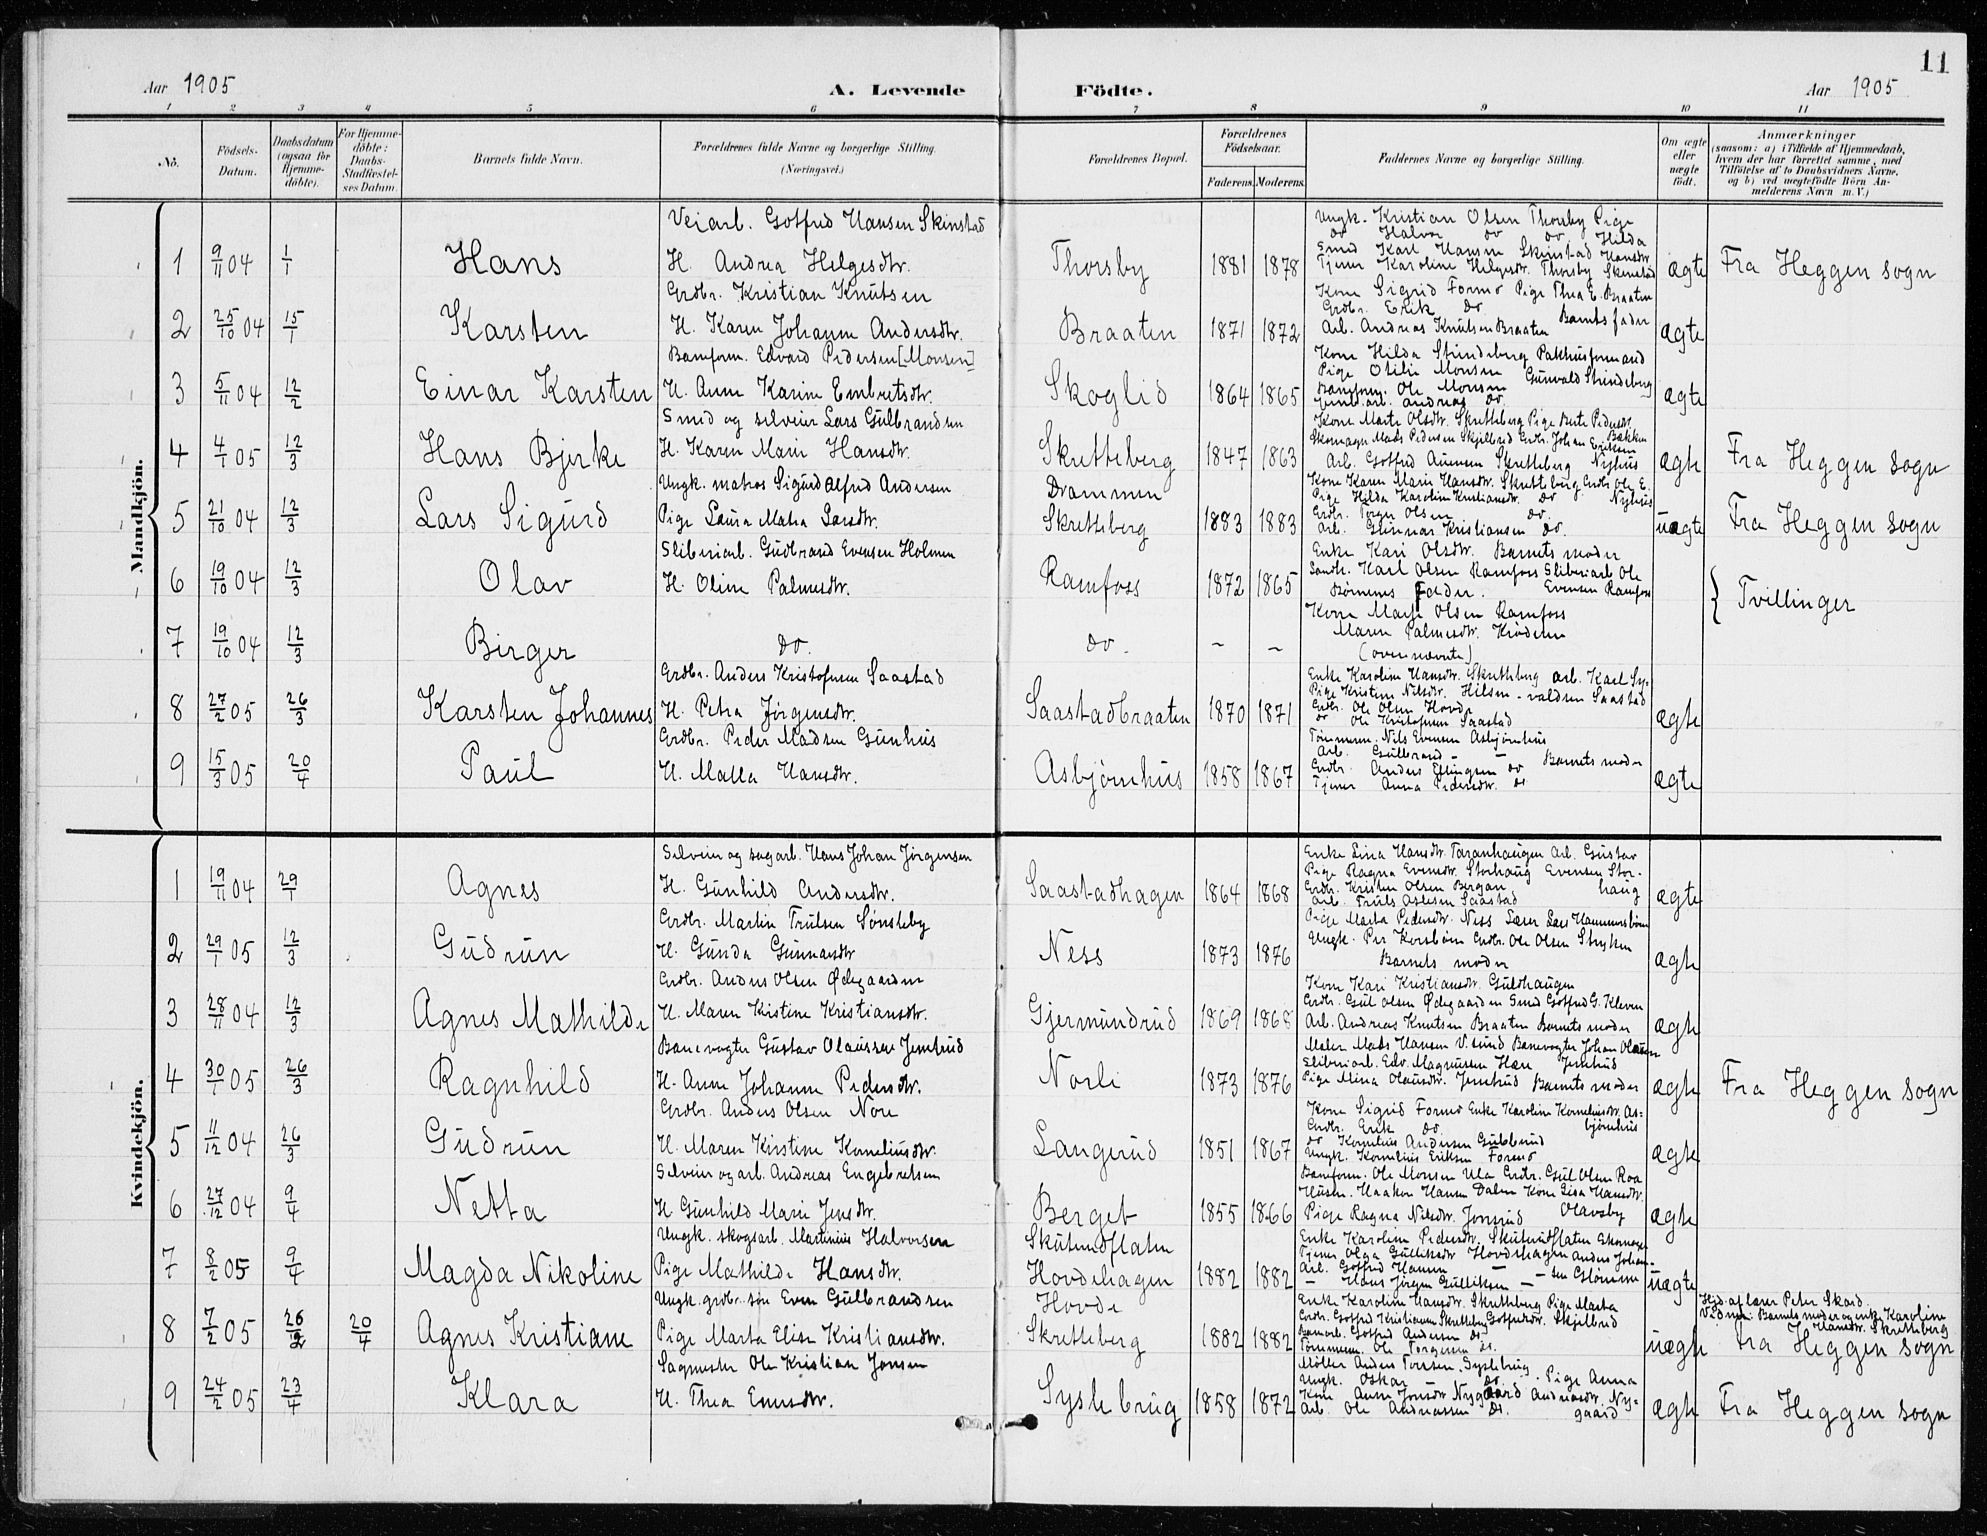 11
Aar 1905 A. Levende Födte. Aar 1905
1 2 3 4 5 6 7 8 9 10 11
No. Födsels-Datum. Daabsdatum (ogsaa for Hjemme-döbte). For Hjemme-döbte: Daabs-Stadfæstel-ses Datum. Barnets fulde Navn. Forældrenes fulde Navne og borgerlige Stilling. (Næringsvei.) Forældrenes Bopæl. Forældrenes Födselsaar. Faderens. Moderens. Faddernes Navne og borgerlige Stilling. Om ægte eller uægte födt. Anmærkninger (saasom: a) i Tilfælde af Hjemmedaab, hvem der har forrettet samme, med Tilföielse af to Daabsvidners Navne, og b) ved uægtefödte Börn An-melderens Navn m. V.)
Mandkjön.
Veiarb. Gotfred Hansen Skinstad
Ungk. Kristian Olsen Thorsby Pige
do Halvor do do Hilda
1 9/11 04 1/1 Hans H. Andrea Helgesdtr. Thorsby 1881 1878 Smed Karl Hansen Skinstad Hansdtr. ægte Fra Heggen sogn
Tjener Karoline Helgesdtr. Thorsby Skinstad
Grdbr. Kristian Knutsen
Kone Sigrid Formo Pige Thea E. Braaten
Grdbr. Erik do Barnets fader
2 25/10 04 15/1 Karsten H. Karen Johanne Andersdtr. Braaten 1871 1872 Arb. Andreas Knutsen Braaten ægte
Baneform. Edvard Pedersen [Monsen]
Kone Hilda Strindeberg Pakhusformand
Pige Otilie Monsen Gunvald Strindeberg
3 5/11 04 12/2 Einar Karsten H. Anne Karine Embretsdtr. Skoglid 1864 1865 Baneform. Ole Monsen ægte
Jernb.arb. Andreas do
Smed og selveier Lars Gulbrandsen
Kone Marte Olsdtr. Skretteberg Pige Berte Pedersdtr.
Skomager Mads Pedersen Skjelbred Grdbr. Johan Eriksen Bakken
4 4/1 05 12/3 Hans Bjerke H. Karen Marie Hansdtr. Skretteberg 1847 1863 Arb. Gotfred Auensen Skretteberg Nyhus ægte Fra Heggen sogn
Ungk. matros Sigurd Alfred Andersen Drammen
Kone Karen Marie Hansdtr. Skretteberg Grdbr. Ole E.
Pige Hilda Karoline Kristiansdtr. do Nyhus
5 21/10 04 12/3 Lars Sigurd Pige Laura Matea Larsdtr. Skretteberg 1883 1883 Grdbr. Torger Olsen do. uægte Fra Heggen sogn
Arb. Gunnar Kristiansen do.
Sliberiarb. Gudbrand Evensen Holmen
Enke Kari Olsdtr. Barnets moder
6 19/10 04 12/3 Olav H. Oline Palmesdtr. Ramfoss 1872 1865 Landh. Karl Olsen Ramfoss Sliberiarb. Ole Evensen Ramfoss
Børnenes Fader. } Tvillinger
Kone Marie Olsen Ramfoss
7 19/10 04 12/3 Birger do. do. ~ ~ Maren Palmesdtr. Krøderen
(ovennævnte)
Grdbr. Anders Kristofersen Saastad
Enke Karoline Hansdtr. Skretteberg Arb. Karl Sy-
Pige Kristine Nilsdtr. Hilsen -valdsen Saastad
8 27/2 05 26/3 Karsten Johannes H. Petra Jørgensdtr. Saastadbraaten 1870 1871 Grdbr. Ole Olsen Hovde ægte
do Ole Kristofersen Saastad
Grdbr. Peder Madsen Gunhus
Tømmerm. Nils Evensen Asbjørnhus
Arb. Gulbrand - - Barnets moder
9 15/3 05 20/4 Paul H. Malla Hansdtr. Asbjørnhus 1858 1867 Grdbr. Anders Ellingsen do ægte
Tjener Anna Pedersdtr. do
Kvindekjön.
Selveier og sagarb. Hans Johan Jørgensen
Enke Lina Hansdtr. Taranhaugen Arb. Gustav
Pige Ragna Evensdtr. Storhaug Evensen Stor-
1 19/11 04 29/1 Agnes H. Gunhild Andersdtr. Saastadhagen 1864 1868 Grdbr. Kristen Olsen Bergan haug ægte
Arb. Truls Aslesen Saastad
Grdbr. Martin Trulsen Sønsteby
Pige Marta Pedersdtr. Ness Lærer Lars Hammersbøen
2 29/1 05 12/3 Gudrun H. Gunda Gunnarsdtr Ness 1873 1876 Ungk. Per Korsbøen Grdbr. Ole Olsen Stryken ægte
Barnets moder
Grdbr. Anders Olsen Ødegaarden
Kone Kari Kristiansdtr. Guldhaugen
3 28/11 04 12/3 Agnes Mathilde H. Maren Kristine Kristiansdtr. Gjermundrud 1869 1868 Grdbr. Gul Olsen Ødegaarden Smed Gotfred G. Kleven ægte
Arb. Andreas Knutsen Braaten Barnets moder
Banevogter Gustav Olaussen Jemterud
Maler Mads Hansen Vikersund Banevogter Johan Olaussen
Sliberiarb. Edv. Magnussen Hære Jemterud
4 30/1 05 26/3 Ragnhild H. Anne Johanne Pedersdtr. Norli 1873 1876 Pige Mina Olausdtr. Jemterud Barnets moder ægte Fra Heggen sogn
Grdbr. Anders Olsen Nore
Kone Sigrid Formo Enke Karoline Korneliusdtr. As=
Grdbr. Erik do. bjørnhus
5 11/12 04 26/3 Gudrun H. Maren Kristine Korneliusdtr. Langerud 1851 1867 do Kornelius Andersen Gubberud ægte
Ungk. Kornelius Eriksen Formo
Selveier og arb. Andreas Engebretsen
Baneform. Ole Monsen Ula Grdbr. Gul Olsen Roa
Husm. Haakon Hansen Dalen Kone Lisa Hansdtr.
6 27/12 04 9/4 Netta H. Gunhild Marie Jensdtr. Berget 1855 1866 Pige Ragna Nilsdtr. Jonsrud Olavsby ægte
Ungk. skogsarb. Martinius Halvorsen Skuterudflaten
Enke Karoline Pedersdtr. Skuterudflaten Skomager
Tjener Olga Gulliksdtr. Hovdehagen Anders Johan-
7 8/2 05 9/4 Magda Nikoline Pige Mathilde Hansdtr. Hovdehagen 1882 1882 Arb. Gotfred Hansen — -sen Glømme uægte
— Hans Jørgen Gulliksen —
Ungk. grdbr. søn Even Gulbrandsen Hovde
Enke Karoline Hansdtr. Skretteberg Pige Marta
Grdbr. Gotfred Kristiansen Skretteberg Gotfredsdtr. Skjelbred
Hjd. af lærer Peter Skard.
Vidner: Barnets moder og enke Karoline
Hansdtr. Skretteberg
8 7/2 05 26/2 20/4 Agnes Kristiane Pige Marta Elise Kristiansdtr. Skretteberg 1882 1882 Banearb. Gotfred Andersen do. uægte Fra Heggen sogn
Tømmerm. Ole Torgersen do.
Sagmester Ole Kristian Jonsen
Møller Anders Torresen Syslebrug
Ungk. Oskar do. Pige Anna
9 24/2 05 23/4 Klara H. Thea Enersdtr. Syslebrug 1858 1872 Kone Anne Jonsdtr Nygaard Andreasdtr. Ny= ægte Fra Heggen sogn
Arb. Ole Andreassen do. gaard